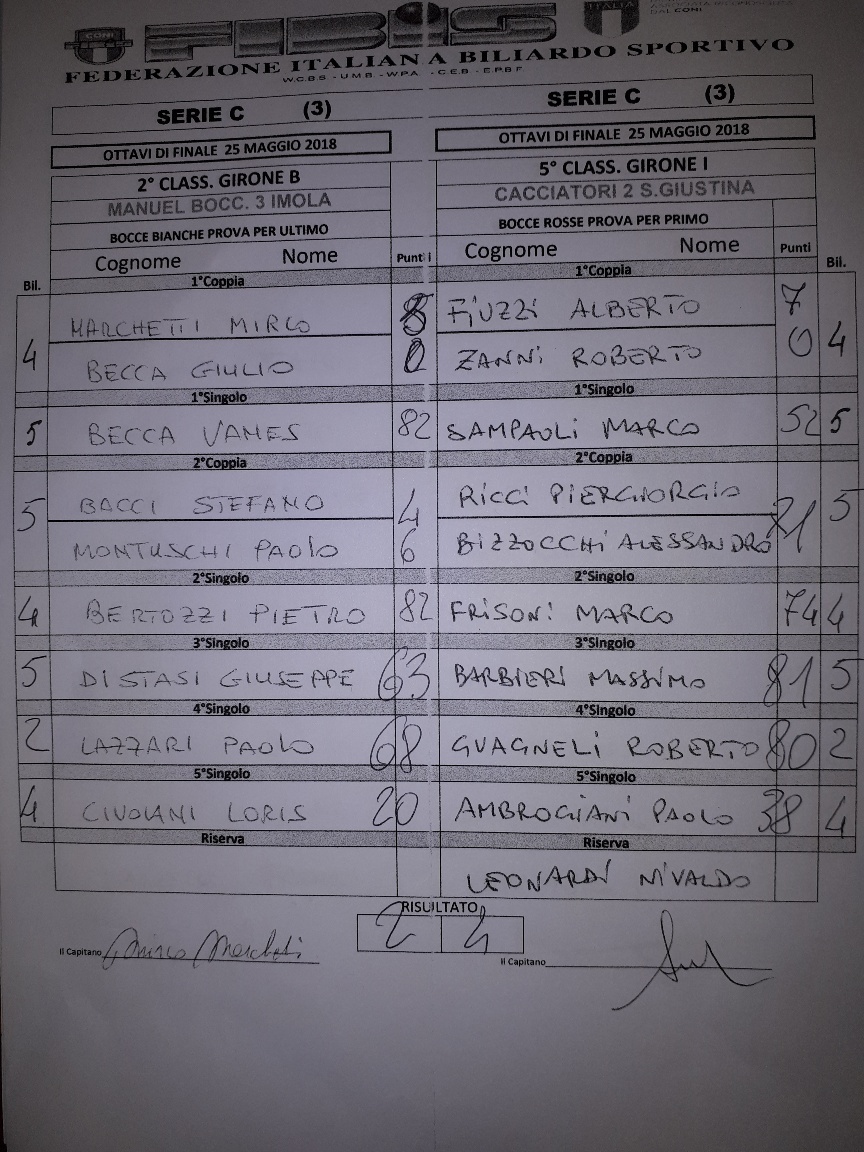 CONI FIBIS ITALIA
DAL CONI
FEDERAZIONE ITALIANA BILIARDO SPORTIVO
W.C.B.S - U.M.B - W.P.A - C.E.B - E.P.B.F
SERIE C (3) SERIE C (3)
OTTAVI DI FINALE 25 MAGGIO 2018 OTTAVI DI FINALE 25 MAGGIO 2018
2° CLASS. GIRONE B 5° CLASS. GIRONE I
MANUEL BOCC. 3 IMOLA CACCIATORI 2 S.GIUSTINA
BOCCE BIANCHE PROVA PER ULTIMO BOCCE ROSSE PROVA PER PRIMO
Cognome Nome Punti Cognome Nome Punti
Bil. 1°Coppia 1°Coppia Bil.
MARCHETTI MIRCO FIUZZI ALBERTO 7
4 4
BECCA GIULIO 0 ZANNI ROBERTO 0
1°Singolo 1°Singolo
5 BECCA VAMES 82 SAMPAOLI MARCO 52 5
2°Coppia 2°Coppia
BACCI STEFANO 4 RICCI PIERGIORGIO
5 5
MONTUSCHI PAOLO 6 BIZZOCCHI ALESSANDRO
2°Singolo 2°Singolo
4 BERTOZZI PIETRO 82 FRISONI MARCO 74 4
3°Singolo 3°Singolo
5 DI STASI GIUSEPPE 63 BARBIERI MASSIMO 81 5
4°Singolo 4°Singolo
2 LAZZARI PAOLO 68 GUAGNELI ROBERTO 80 2
5°Singolo 5°Singolo
4 CIVOLANI LORIS 20 AMBROGIANI PAOLO 38 4
Riserva Riserva
LEONARDI NIVALDO
RISULTATO
2 4
Il Capitano Mirco Marchetti Il Capitano